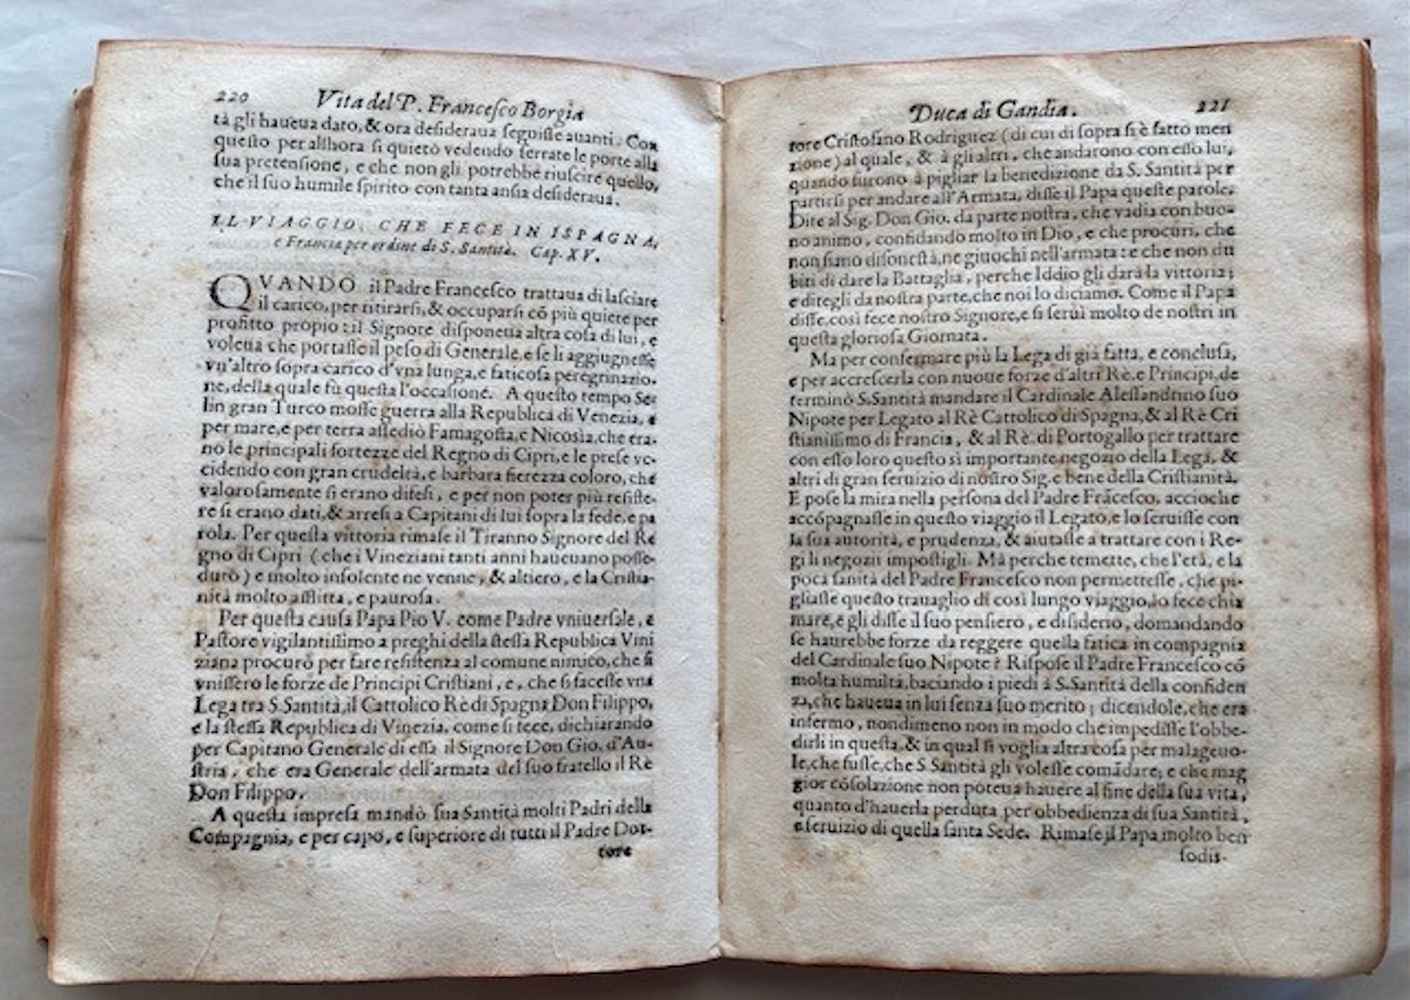 220 Vita del P. Francesco Borgia
tà gli haueua dato, & ora desideraua seguisse auanti. Con
questo per allhora si quietò vedendo serrate le porte alla
sua pretensione, e che non gli potrebbe riuscire quello,
che il suo humile spirito con tanta ansia desideraua.
IL VIAGGIO, CHE FECE IN ISPAGNA,
e Francia per ordine di S. Santità. Cap. XV.
QVANDO il Padre Francesco trattaua di lasciare
il carico, per ritirarsi, & occuparsi cō più quiete per
profitto propio: il Signore disponeua altra cosa di lui, e
voleua che portasse il peso di Generale, e se li aggiugnesse
vn'altro sopra carico d'vna lunga, e faticosa peregrinazio-
ne, della quale fù questa l'occasione. A questo tempo Se-
lin gran Turco mosse guerra alla Republica di Venezia, e
per mare, e per terra assediò Famagosta, e Nicosia, che era-
no le principali fortezze del Regno di Cipri, e le prese vc-
cidendo con gran crudeltà, e barbara fierezza coloro, che
valorosamente si erano difesi, e per non poter più resiste-
re si erano dati, & arresi a Capitani di lui sopra la fede, e pa
rola. Per questa vittoria rimase il Tiranno Signore del Re
gno di Cipri (che i Vineziani tanti anni haueuano posse-
duto) e molto insolente ne venne, & altiero, e la Cristia-
nità molto afflitta, e paurosa.
Per questa causa Papa Pio V. come Padre vniuersale, e
Pastore vigilantissimo a preghi della stessa Republica Vini
ziana procurò per fare resistenza al comune nimico, che si
vnissero le forze de Principi Cristiani, e, che si facesse vna
Lega tra S. Santità, il Cattolico Rè di Spagna Don Filippo,
e la stessa Republica di Vinezia, come si fece, dichiarando
per Capitano Generale di essa il Signore Don Gio. d'Au-
stria, che era Generale dell'armata del suo fratello il Rè
Don Filippo.
A questa impresa mandò sua Santità molti Padri della
Compagnia, e per capo, e superiore di tutti il Padre Dot-
tore
Duca di Gandia. 221
tore Cristofano Rodriguez (di cui di sopra si è fatto men
zione) al quale, & à gli altri, che andarono con esso lui,
quando furono à pigliar la benedizione da S. Santità per
partirsi per andare all'Armata, disse il Papa queste parole.
Dite al Sig. Don Gio. da parte nostra, che vadia con buo-
no animo, confidando molto in Dio, e che procuri, che
non siano disonestà, ne giuochi nell'armata: e che non du
biti di dare la Battaglia, perche Iddio gli darà la vittoria;
e ditegli da nostra parte, che noi lo diciamo. Come il Papa
disse, così fece nostro Signore, e si seruì molto de nostri in
questa gloriosa Giornata.
Ma per confermare più la Lega di già fatta, e conclusa,
e per accrescerla con nuoue forze d'altri Rè, e Principi, de
terminò S. Santità mandare il Cardinale Alessandrino suo
Nipote per Legato al Rè Cattolico di Spagna, & al Rè Cri
stianissimo di Francia, & al Rè di Portogallo per trattare
con esso loro questo sì importante negozio della Lega, &
altri di gran seruizio di nostro Sig. e bene della Cristianità.
E pose la mira nella persona del Padre Frācesco, accioche
accōpagnasse in questo viaggio il Legato, e lo seruisse con
la sua autorità, e prudenza, & aiutasse a trattare con i Re-
gi li negozii impostigli. Mà perche temette, che l'età, e la
poca sanità del Padre Francesco non permettesse, che pi-
gliasse questo trauaglio di così lungo viaggio, lo fece chia
mare, e gli disse il suo pensiero, e disiderio, domandando
se haurebbe forze da reggere quella fatica in compagnia
del Cardinale suo Nipote? Rispose il Padre Francesco cō
molta humiltà, baciando i piedi à S. Santità della confiden
za, che haueua in lui senza suo merito; dicendole, che era
infermo, nondimeno non in modo che impedisse l'obbe-
dirli in questa, & in qual si voglia altra cosa per malageuo-
le, che fusse, che S. Santità gli volesse comādare; e che mag
gior cōsolazione non poteua hauere al fine della sua vita,
quanto d'hauerla perduta per obbedienza di sua Santità,
e seruizio di quella santa Sede. Rimase il Papa molto ben
sodis-